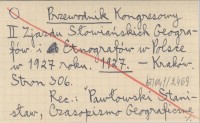 Przewodnik Kongresowy
II Zjazdu Słowiańskich Geogra-
fów i Etnografów w Polsce
w 1927 roku. 1927. — Kraków.
Stron 306.
Rec.: Pawłowski Stani-
sław, Czasopismo Geograficzne